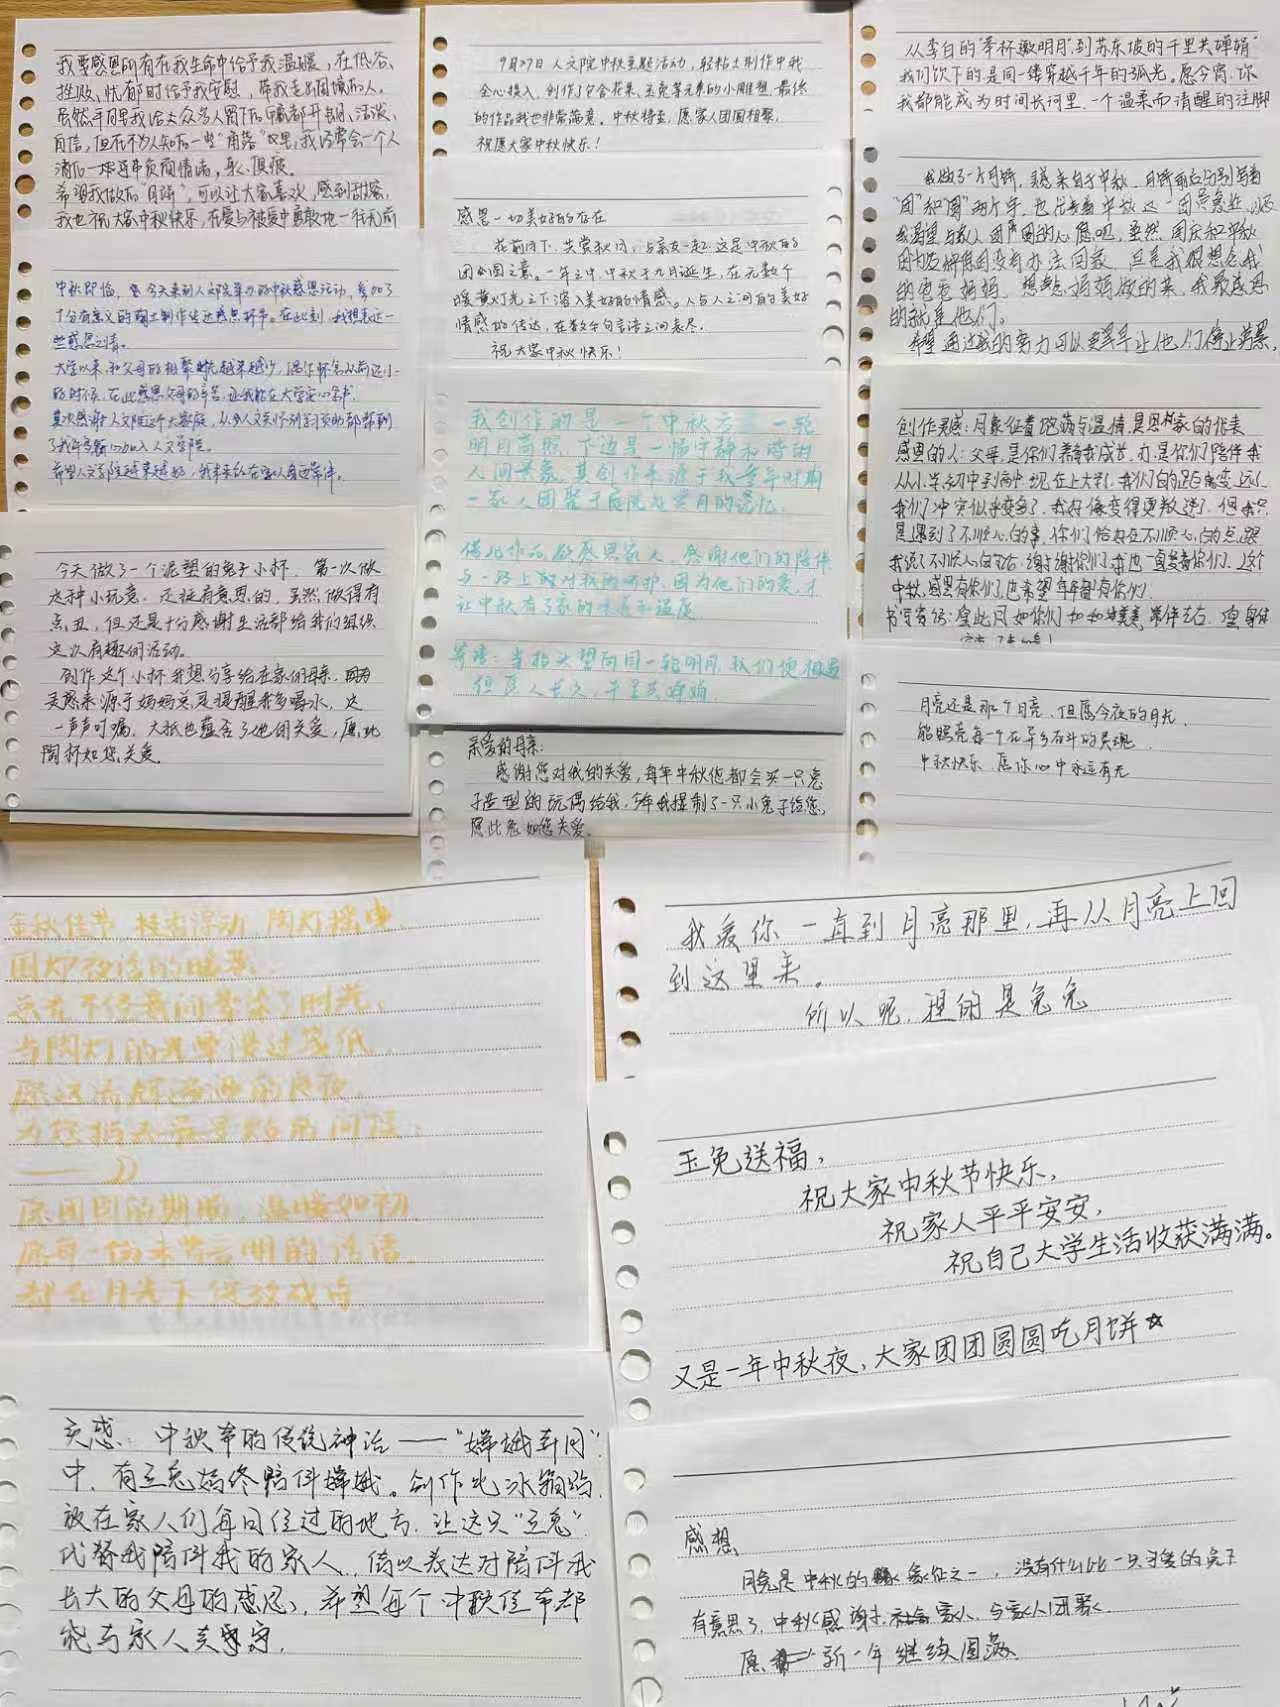 我要感恩所有在我生命中给予我温暖，在低谷、
挫败、忧郁时给予我安慰，带我走出困境的人。
虽然平日里我给大众名人留下的印象都开朗、活泼、
自信，但在不为人知的一些“角落”里，我经常会一个人
希望我做的“月饼”，可以让大家喜欢，感到甜蜜，
我也祝大家中秋快乐，在爱与被爱中勇敢地一往无前
中秋即临，今天来到人文院举办的中秋感恩活动，参加了
十分有意义的陶土制作与送感恩环节。在此刻，我想表达一
些感恩之情。
大学以来，和父母的相聚时光越来越少，偶尔怀念从前还小
的时候，在此感恩父母的辛苦，让我能在大学安心念书。
其次感谢人文院这个大家庭，
希望人文学院越来越好，我未来
今天做了一个泥塑的兔子小杯，第一次做
这种小玩意，还挺有意思的，虽然做得有
点丑，但还是十分感谢生活部给我们组织
这次有趣的活动。
创作这个小杯我想分享给在家的母亲，因为
灵感来源于妈妈总是提醒我多喝水，这
一声声叮嘱，大抵也蕴含了她的关爱，愿此
陶杯如您关爱。
9月27日人文院中秋主题活动，轻粘土制作中我
全心投入，创作了包含花朵、玉兔等元素的小雕塑，最终
的作品我也非常满意。中秋将至，愿家人团圆相聚，
祝愿大家中秋快乐！
感恩一切美好的存在
花前月下，共赏秋月，与亲友一起，这是中秋的
团圆之意。一年之中，中秋于九月诞生，在无数个
暖黄灯光之下深入美好的情感。人与人之间的美好
情感的传达，在数千句言语之间表尽。
祝大家中秋快乐！
我创作的是一个中秋 一轮
明月高照，下边是一幅宁静和谐的
人间景象。其创作来源于我童年时期
一家人团聚于庭院是赏月的记忆。
借此作品，欲感恩家人，感谢他们的陪伴
与一路上对我的呵护，因为他们的爱，才
让中秋有了家的味道和温度
寄语：当抬头望向同一轮明月，我们便相遇
但愿人长久，千里共婵娟
亲爱的母亲：
感谢您对我的关爱，每年中秋您都会买一只兔
子造型的玩偶给我，今年我捏制了一只小兔子给您，
愿此兔如您关爱。
从李白的“举杯邀明月”到苏东坡的千里共婵娟”
我们饮下的是同一缕穿越千年的弧光。愿今宵，你
我都能成为时间长河里，一个温柔而清醒的注脚
我做了一个月饼，灵感来自于中秋，月饼前后分别写着
“团”和“圆”两个字，也代表着中秋这一团圆意象，以及
我渴望与家人团圆的心愿吧，虽然国庆和中秋
因为 没有办法回家，但是我很想念我
的爸爸妈妈，想念妈妈做的菜，我最感恩
的就是他们。
希望通过我的努力可以早早让他们停止劳累，
创作灵感：月象征着饱满与温情，是思家的代表
感恩的人：父母，是你们养育我成长，亦是你们陪伴我
从小学初中到高中，现在上大学，我们的距离变远了，
我们冲突似乎变多了，我好像变得更叛逆了，但我只
是遇到了不顺心的事，你们恰好在不顺心的点跟
我说了不顺心的话，谢谢你们，我也一直爱着你们，这个
中秋，感恩有你们，也希望年年都有你们。
书写寄语：
月亮还是那个月亮，但愿今夜的月光，
能照亮每一个在异乡奋斗的灵魂
中秋快乐，愿你心中永远有光
金秋佳节，桂香浮动，陶灯摇曳，
围炉夜话的暖意
总在不经意间晕染了时光，
当陶灯的光晕漫过笺纸，
愿团圆的期盼，温暖如初，
愿每一份未曾言明的话语，
都在月光下绽放成诗
我爱你一直到月亮那里，再从月亮上回
到这里来。
所以呢，捏的是兔兔
玉兔送福，
祝大家中秋节快乐，
祝家人平平安安，
祝自己大学生活收获满满。
又是一年中秋夜，大家团团圆圆吃月饼☆
灵感：中秋节的传统神话——“嫦娥奔月”
中，有玉兔始终陪伴嫦娥。创作此冰箱贴，
放在家人们每日经过的地方，让这只“玉兔”
代替我陪伴我的家人，借以表达对陪伴我
长大的父母的感恩，希望每个中秋佳节都
能与家人共团圆。
感想
月亮是中秋的象征之一，没有什么比一只可爱的兔子
有意思了，中秋感谢家人，与家人团聚
愿新一年继续圆满